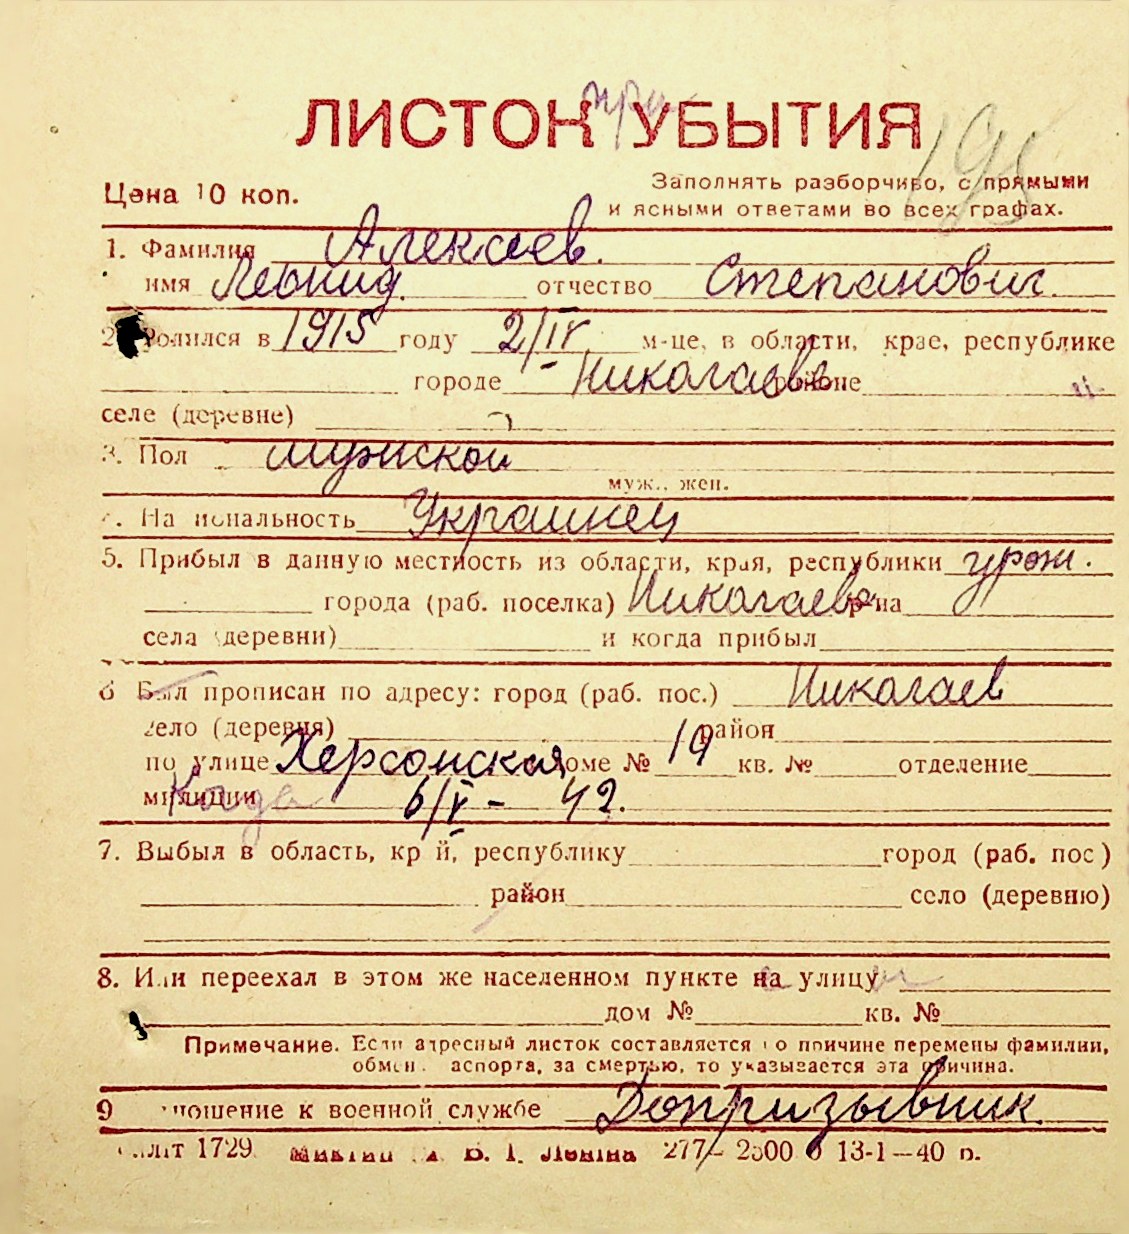 при
ЛИСТОК УБЫТИЯ
195
Цена 10 коп.
Заполнять разборчиво, с прямыми
и ясными ответами во всех графах.
1. Фамилия Алексеев.
имя Леонид. отчество Степанович.
2. Родился в 1915 году 2/IV м-це, в области, крае, республике
городе Николаеве районе
селе (деревне)
3. Пол мужской
муж., жен.
4. Национальность Украинец
5. Прибыл в данную местность из области, края, республики урож.
города (раб. поселка) Николаева р-на
села (деревни) и когда прибыл
6 Был прописан по адресу: город (раб. пос.) Николаев
село (деревня) район
по улице Херсонская доме № 19 кв. № отделение
милиции 6/V - 42.
7. Выбыл в область, край, республику город (раб. пос)
район село (деревню)
8. Или переехал в этом же населенном пункте на улицу
дом № кв. №
Примечание. Если адресный листок составляется по причине перемены фамилии,
обмена паспорта, за смертью, то указывается эта причина.
9 Отношение к военной службе Допризывник.
1729 В. І. Леніна 277 – 2500 б 13-1–40 р.